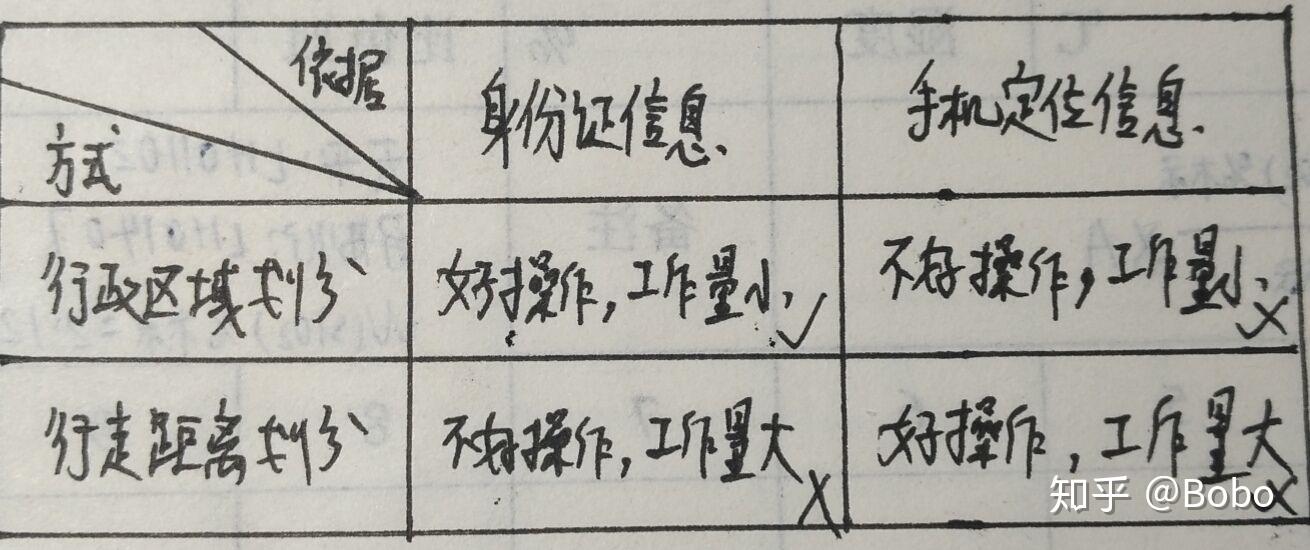 依据
方式
身份证信息
手机定位信息
行政区域划分
好操作,工作量小 ✓
不好操作,工作量小 ×
行走距离划分
不好操作,工作量大 ×
好操作,工作量大 ×
知乎 @Bobo